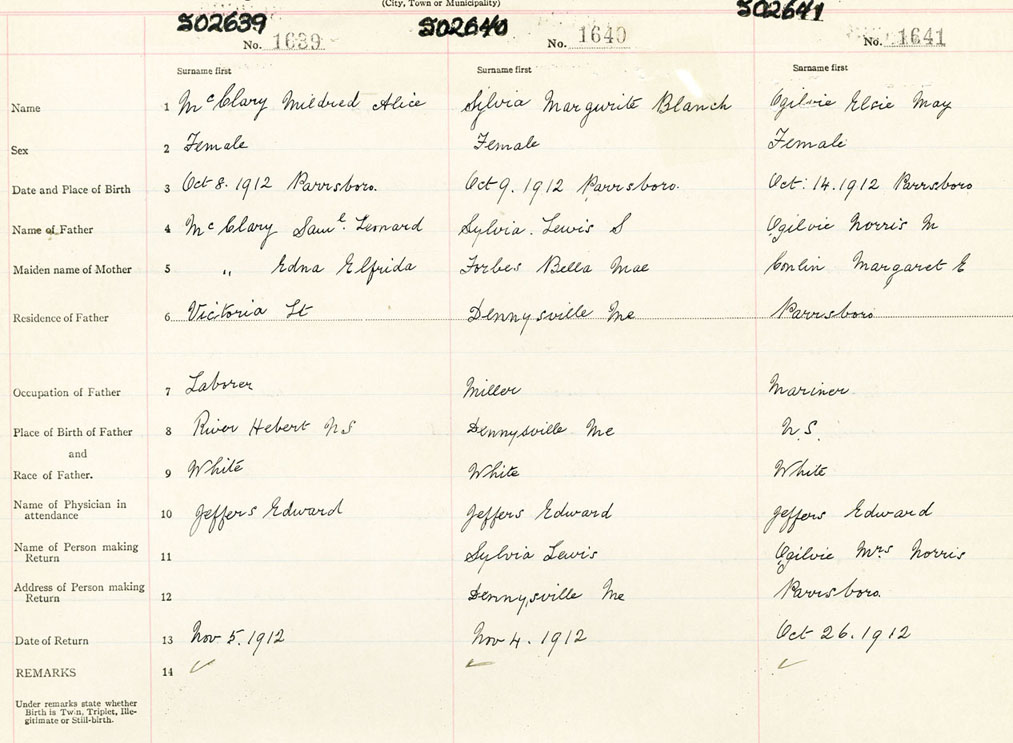 (City, Town or Municipality)
S02639 S02640 S02641
No. 1639 No. 1640 No. 1641
Surname first Surname first Surname first
Name 1 McClary Mildred Alice Sylvia Margurite Blanch Ogilvie Elsie May
Sex 2 Female Female Female
Date and Place of Birth 3 Oct 8. 1912 Parrsboro. Oct 9. 1912 Parrsboro. Oct: 14. 1912 Parrsboro
Name of Father 4 McClary Saml. Leonard Sylvia. Lewis S Ogilvie Norris M
Maiden name of Mother 5 " Edna Elfrida Forbes Bella Mae Conlin Margaret E
Residence of Father 6 Victoria St Dennysville Me Parrsboro
Occupation of Father 7 Laborer Miller Mariner
Place of Birth of Father 8 River Hebert N S Dennysville Me N. S.
and
Race of Father. 9 White White White
Name of Physician in
attendance 10 Jeffers Edward Jeffers Edward Jeffers Edward
Name of Person making
Return 11 Sylvia Lewis Ogilvie Mrs Norris
Address of Person making
Return 12 Dennysville Me Parrsboro.
Date of Return 13 Nov 5. 1912 Nov 4. 1912 Oct 26. 1912
REMARKS 14 ✓ ✓ ✓
Under remarks state whether
Birth is Twin, Triplet, Ille-
gitimate or Still-birth.